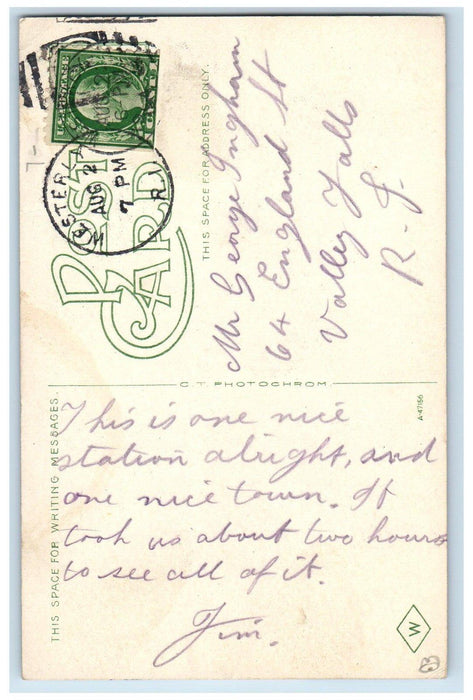 U.S. POSTAGE
WESTERLY
AUG 2
7 PM
R.I.
POST CARD
THIS SPACE FOR ADDRESS ONLY.
Mr George Ingham
64 England St
Valley Falls
R. I.
C.T. PHOTOCHROM
A-47156
THIS SPACE FOR WRITING MESSAGES.
This is one nice
station alright, and
one nice town. It
took us about two hours
to see all of it.
Jim.
W